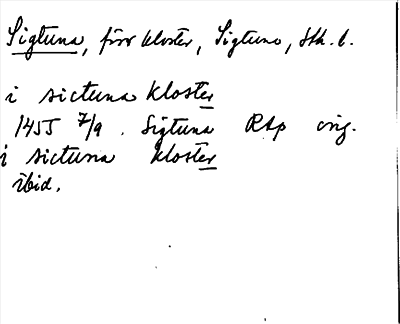 Sigtuna, förr kloster, Sigtuna, Sth. l.
i sictuna kloster
1455 7/9. Sigtuna RAp orig.
i sictuna kloster
ibid.